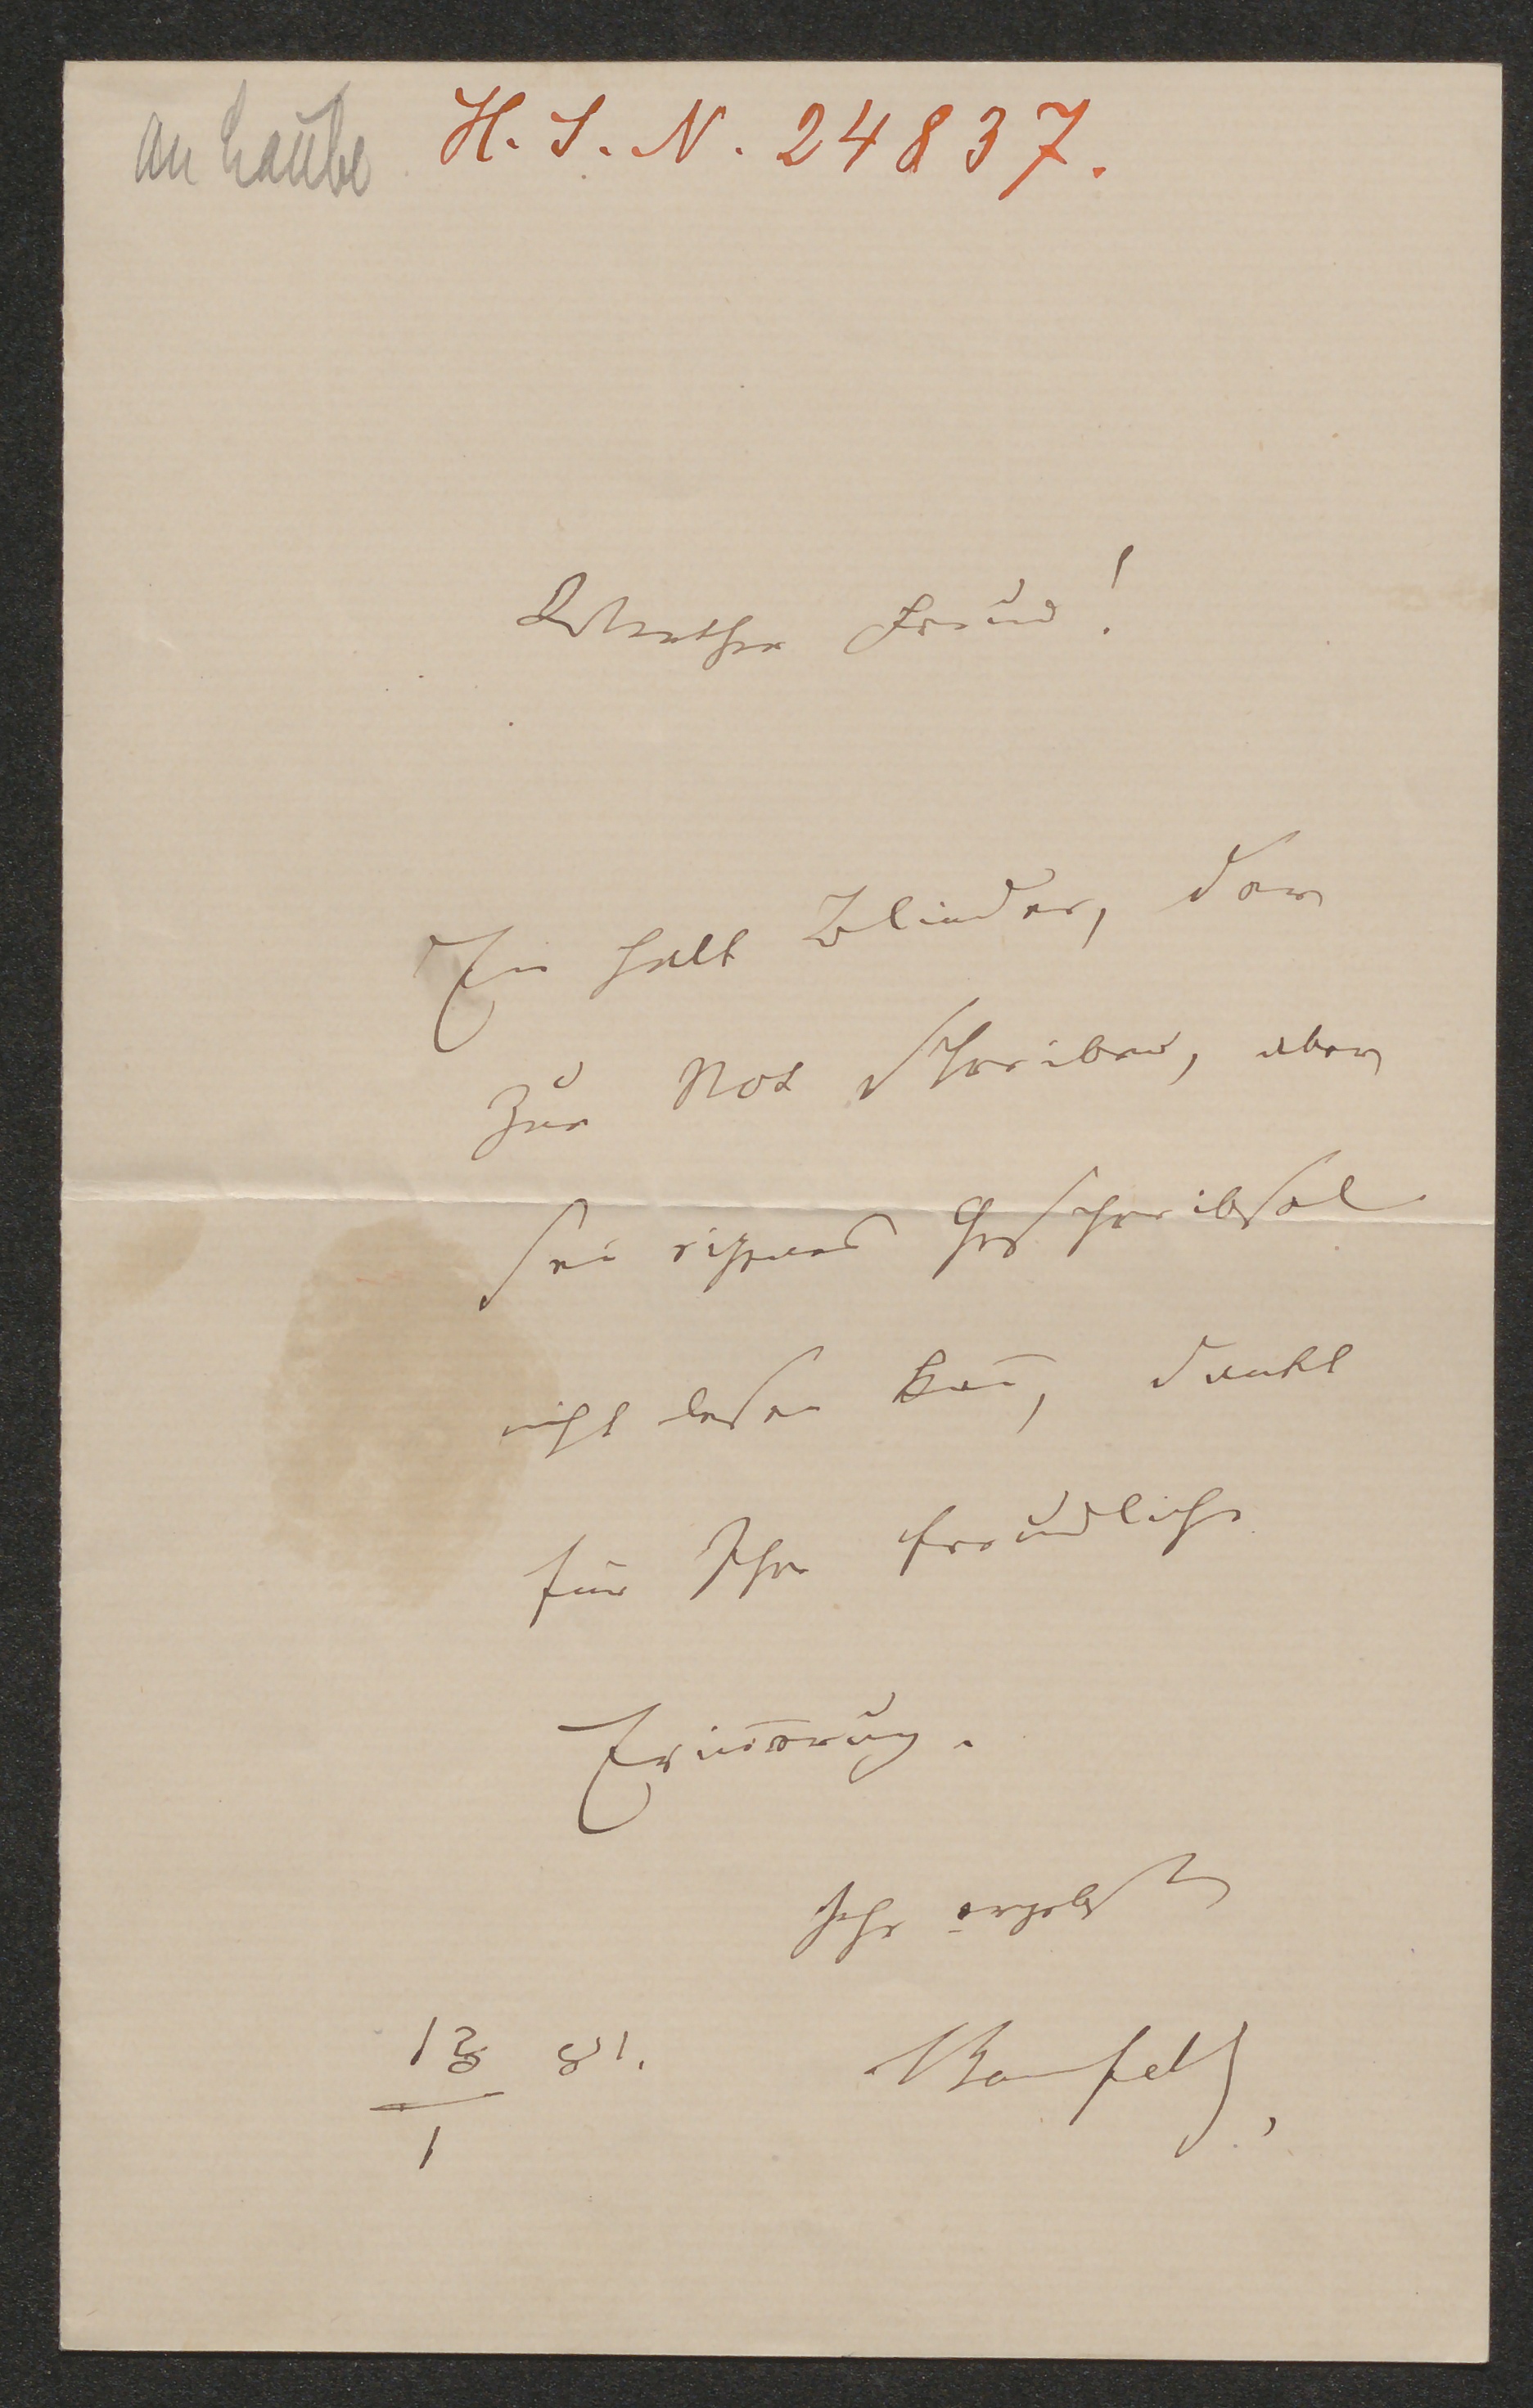 an Laube H. I. N. 24837.
Werther Freund!
Ein halb Blinder, der
zur Not schreiben, aber
sein eigenes Geschreibsel
nicht lesen kan̄, dankt
für Ihre freundliche
Erin̄erung.
Ihr ergebster
81.
Bauernfeld,
1